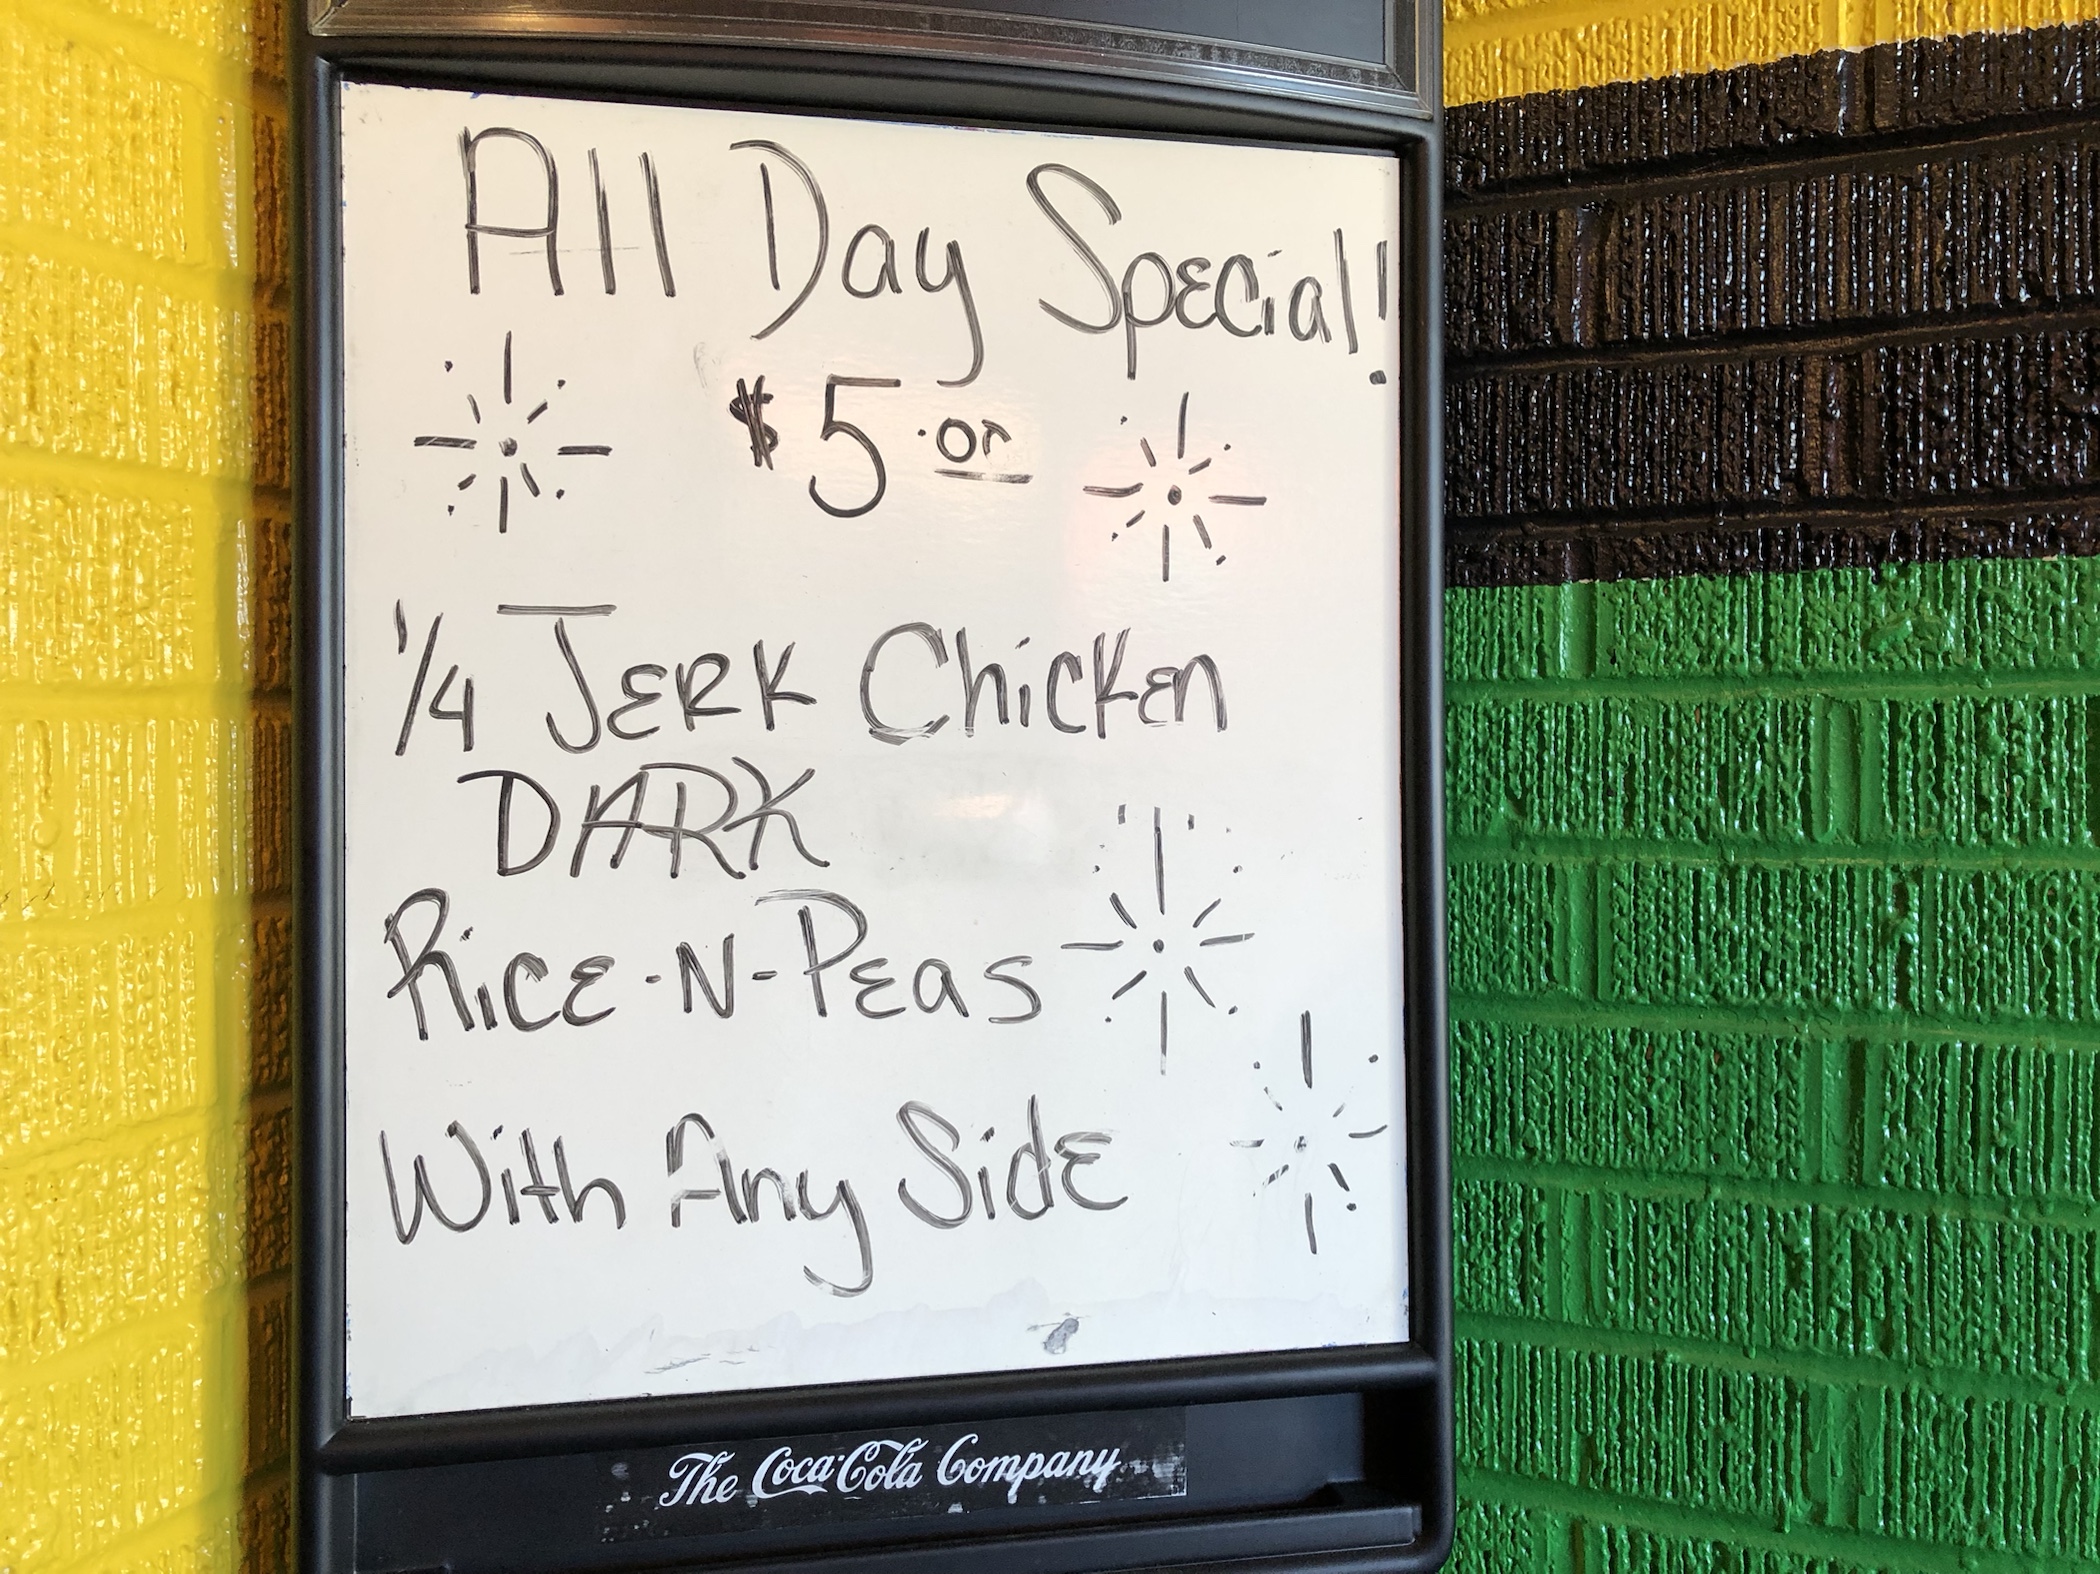 All Day Special!
$5.00
1/4 Jerk Chicken
DARK
Rice-N-Peas
With Any Side
The Coca-Cola Company